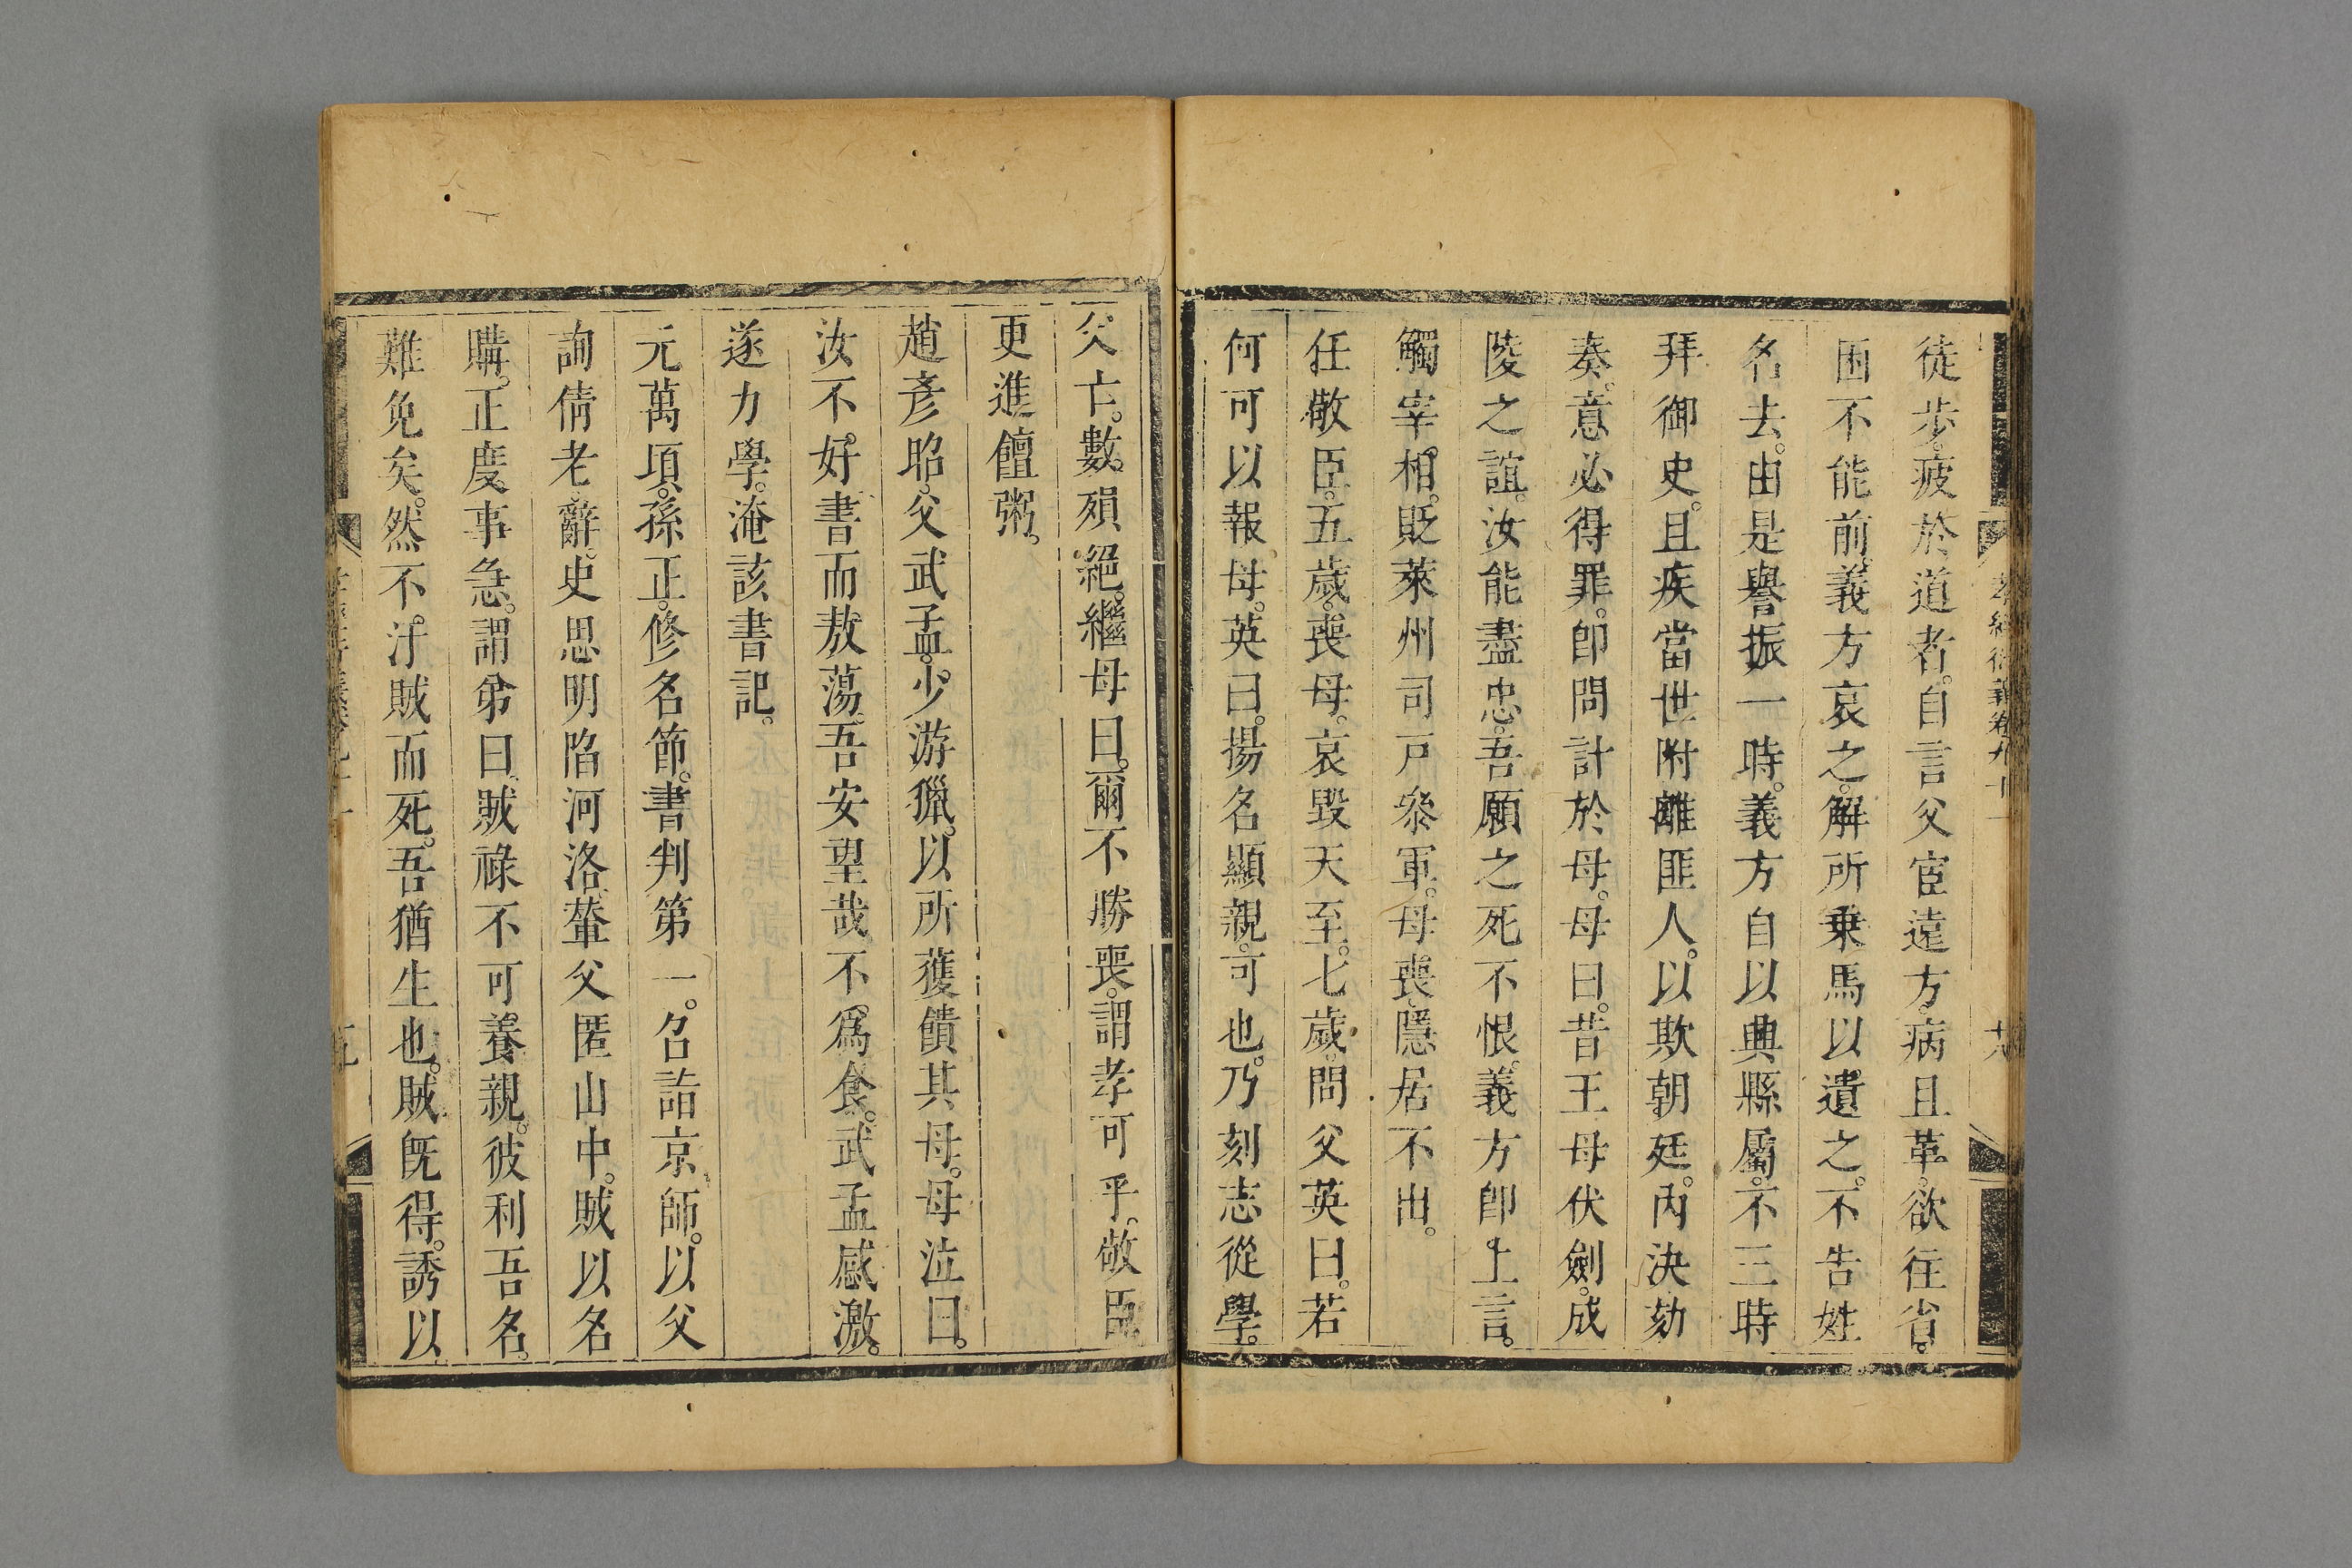 徒步。疲於道者。自言父宦遠方。病且革。欲往省。
困不能前。義方哀之。解所乗馬以遺之。不告姓
名去。由是譽振一時。義方自以典縣屬。不三時
拜御史。且疾當世附離匪人。以欺朝廷。内決劾
奏。意必得罪。卽問計於母。母曰。昔王母伏劍。成
陵之誼。汝能盡忠。吾願之死不恨。義方卽上言。
觸宰相。貶萊州司戸叅軍。母喪。隱居不出。
任敬臣。五歲。喪母。哀毀天至。七歲。問父英曰。若
何可以報母。英曰。揚名顯親。可也。乃刻志從學。
父亡。數殞絕。繼母曰。爾不勝喪。謂孝可乎。敬臣
更進饘粥。
趙彥昭。父武孟。少游獵。以所獲饋其母。母泣曰。
汝不好書而敖蕩。吾安望哉。不爲食。武孟感激。
遂力學。淹該書記。
元萬頃。孫正。修名節。書判第一。召詣京師。以父
詢倩老辭。史思明陷河洛。輦父匿山中。賊以名
購。正度事急。謂弟曰。賊祿不可養親。彼利吾名。
難免矣。然不汙賊而死。吾猶生也。賊旣得。誘以